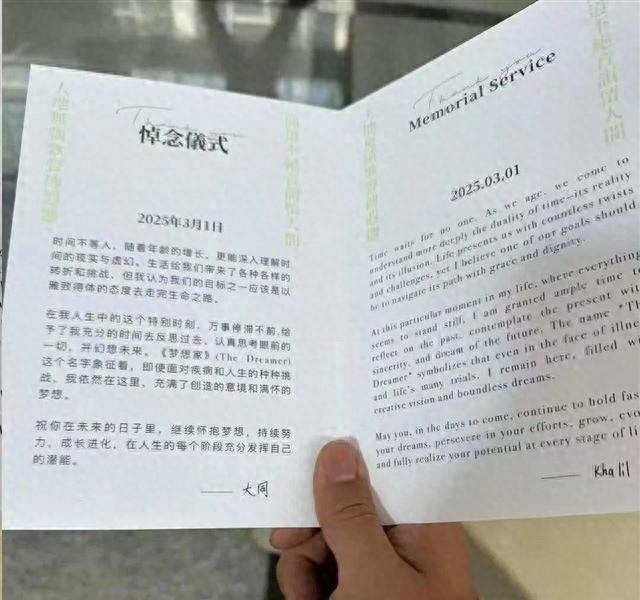 Thank you
悼念儀式
2025年3月1日
时间不等人，随着年龄的增长，更能深入理解时
间的现实与虚幻。生活给我们带来了各种各样的
转折和挑战，但我认为我们的目标之一应该是以
雅致得体的态度去走完生命之路。
在我人生中的这个特别时刻，万事停滞不前，给
予了我充分的时间去反思过去、认真思考眼前的
一切，并幻想未来。《梦想家》(The Dreamer)
这个名字象征着，即使面对疾病和人生的种种挑
战，我依然在这里，充满了创造的意境和满怀的
梦想。
祝你在未来的日子里，继续怀抱梦想，持续努
力，成长进化，在人生的每个阶段充分发挥自己
的潜能。
—— 大同
Thank you
Memorial Service
2025.03.01
Time waits for no one. As we age, we come to
understand more deeply the duality of time—its reality
and its illusion. Life presents us with countless twists
and challenges, yet I believe one of our goals should
be to navigate its path with grace and dignity.
At this particular moment in my life, where everything
seems to stand still, I am granted ample time to
reflect on the past, contemplate the present with
sincerity, and dream of the future. The name
Dreamer" symbolizes that even in the face of
and life's many trials, I remain here, filled
creative vision and boundless dreams.
May you, in the days to come, continue to hold fast
your dreams, persevere in your efforts, grow,
and fully realize your potential at every stage of
—— Khalil